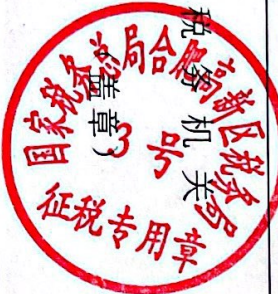 国家税务总局合肥高新区税务局
3号
征税专用章
税务机关
(盖章)